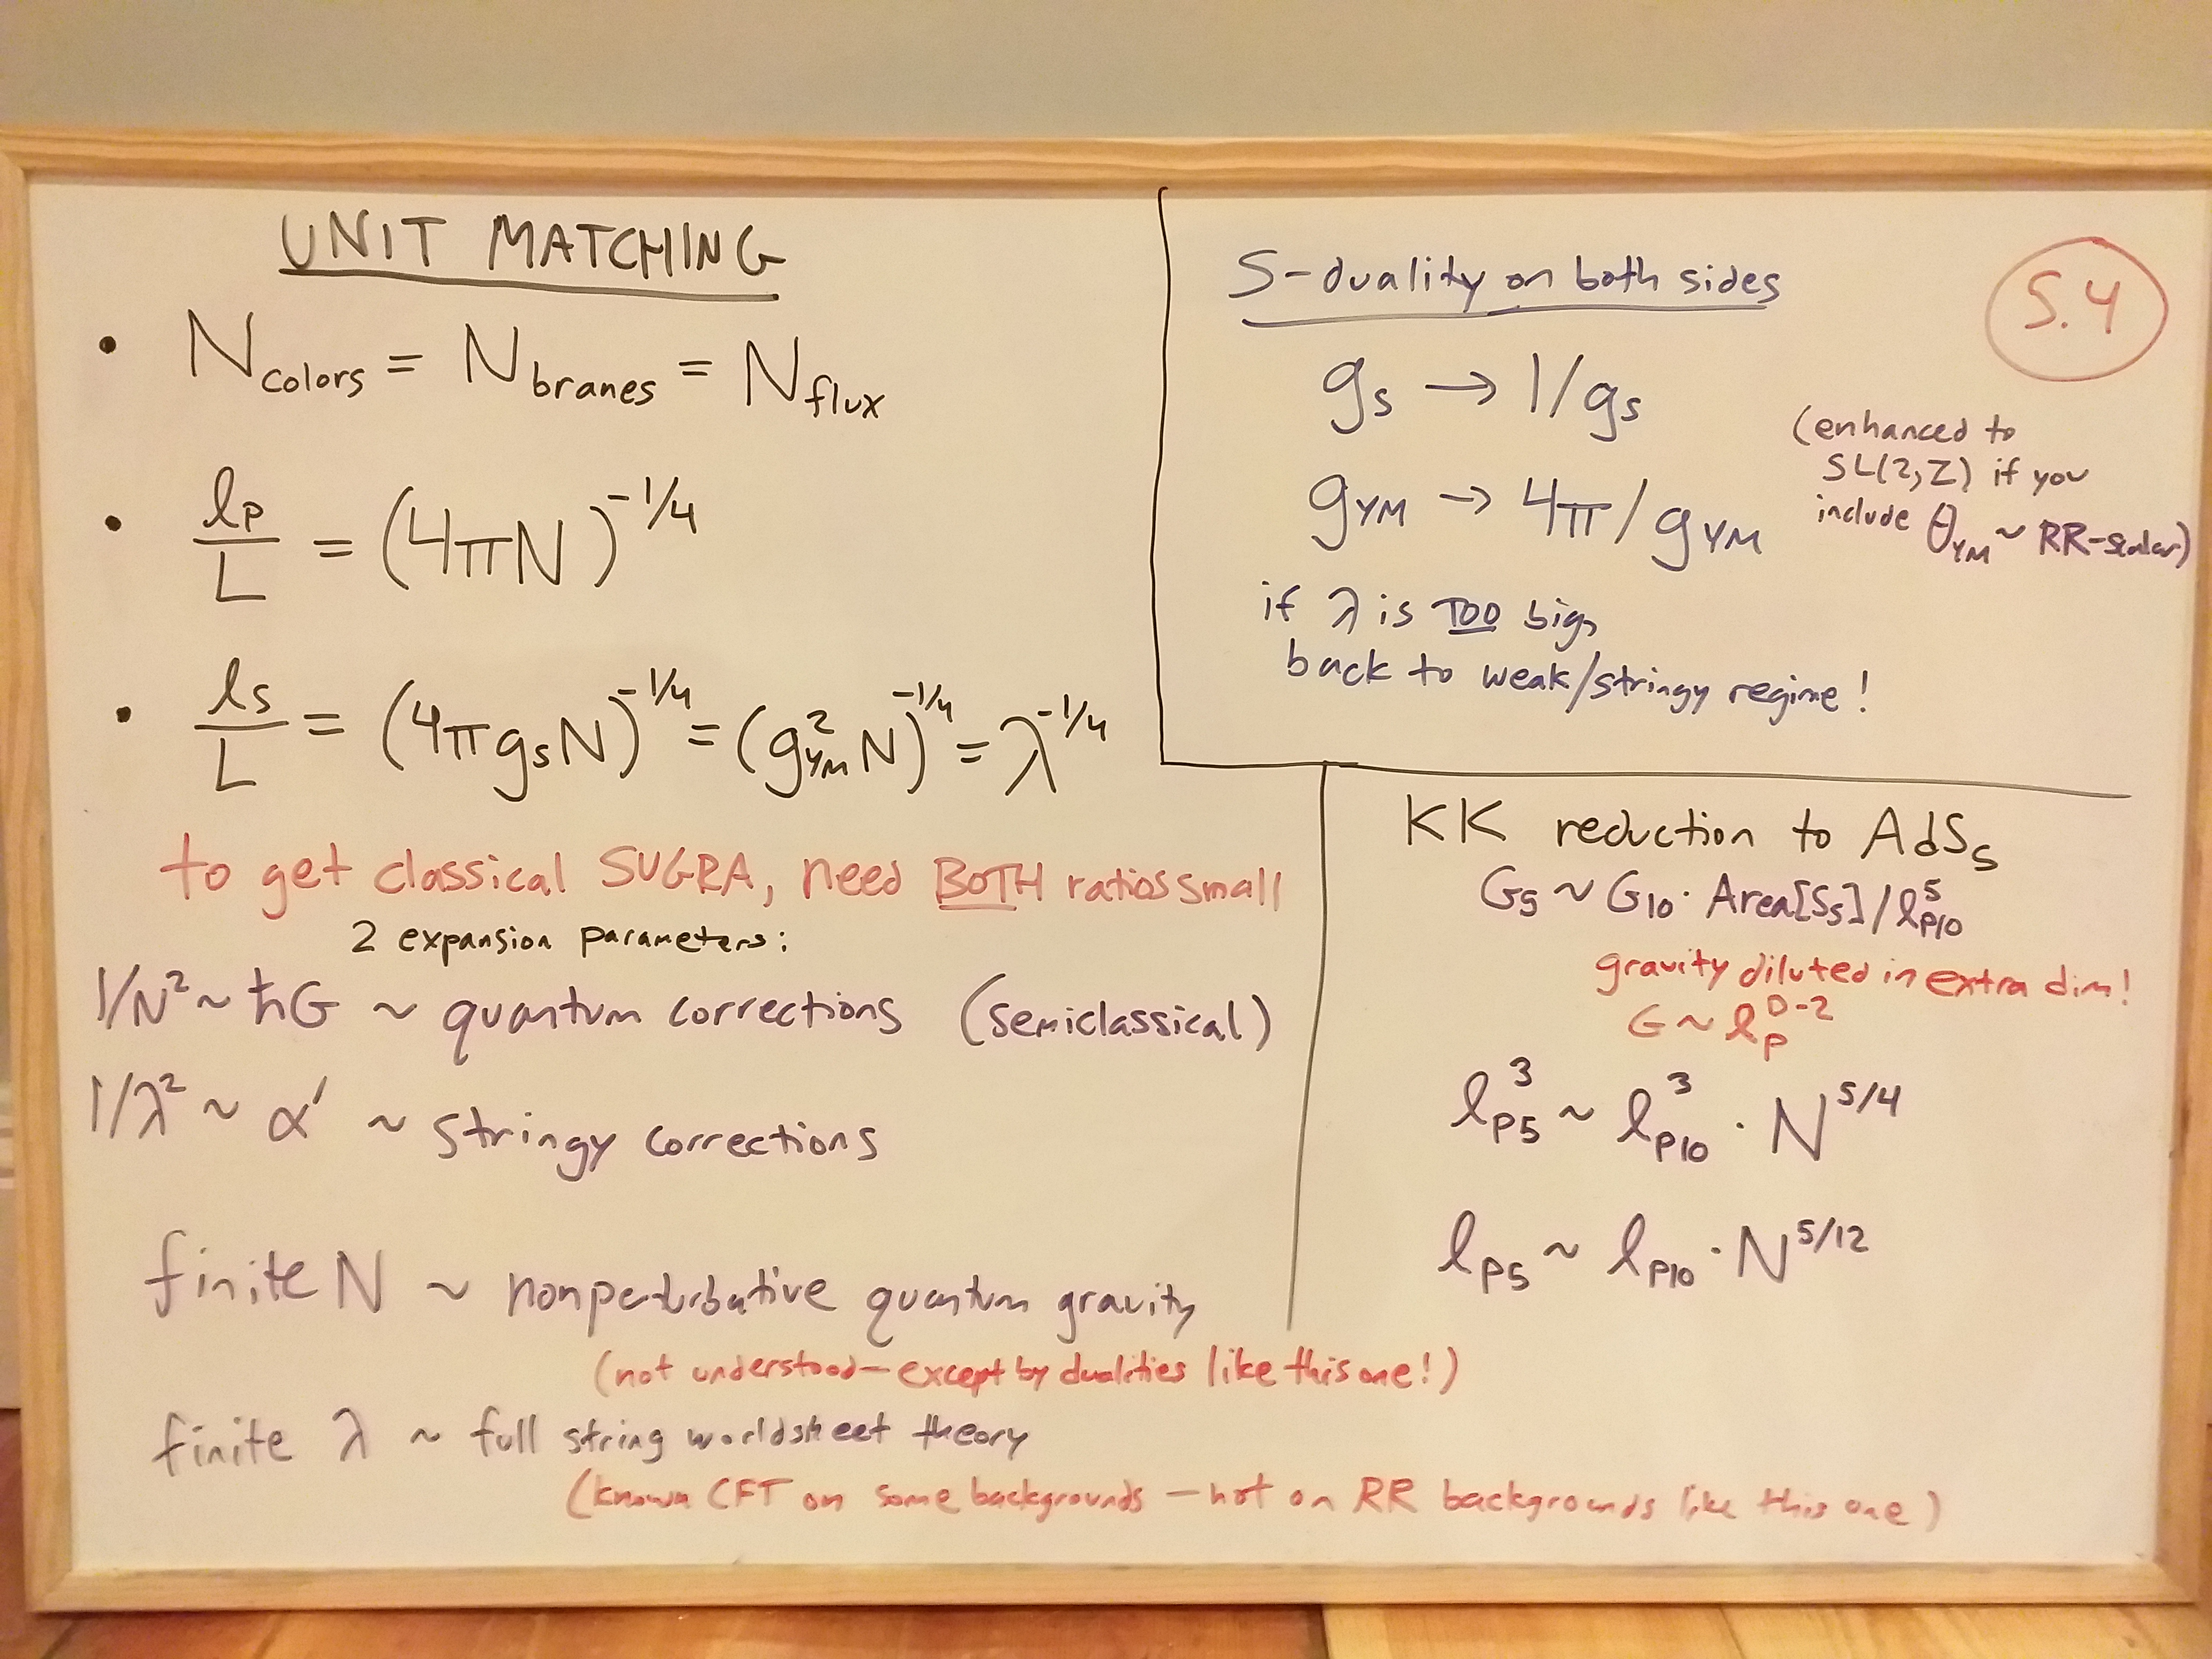 UNIT MATCHING
• N_colors = N_branes = N_flux
• l_p/L = (4πN)^-1/4
• l_s/L = (4πg_sN)^-1/4 = (g²_YM N)^-1/4 = λ^-1/4
to get classical SUGRA, need BOTH ratios small
2 expansion parameters:
1/N² ~ ħG ~ quantum corrections (semiclassical)
1/λ² ~ α' ~ stringy corrections
finite N ~ nonperturbative quantum gravity
(not understood—except by dualities like this one!)
finite λ ~ full string worldsheet theory
(known CFT on some backgrounds — not on RR backgrounds like this one)
S-duality on both sides
5.4
g_s → 1/g_s
g_YM → 4π/g_YM
(enhanced to
SL(2,Z) if you
include θ_YM ~ RR-scalar)
if λ is TOO big,
back to weak/stringy regime!
KK reduction to AdS_5
G_5 ~ G_10 · Area[S_5]/l_p10^5
gravity diluted in extra dim!
G ~ l_p^D-2
l_p5^3 ~ l_p10^3 · N^5/4
l_p5 ~ l_p10 · N^5/12